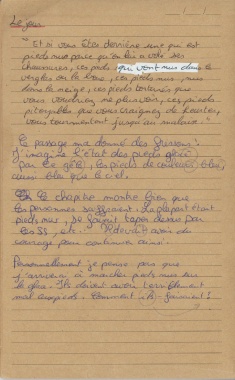 Le jour
" Et si vous êtes derrière une qui est
pieds nus parce qu'on lui a volé ses
chaussures, ces pieds qui vont nus dans le
verglas ou la boue, ces pieds nus, nus
dans la neige, ces pieds torturés que
vous voudriez ne plus voir, ces pieds
pitoyables que vous craignez de heurter,
vous tourmentent jusqu'au malaise. "
Ce passage m'a donné des frissons !
J'imagine l'état des pieds glacés
par ce gel. Les pieds de couleur bleu,
aussi bleu que le ciel.
Ce chapitre montre bien que
les personnes souffraient. La plupart étant
pieds nus. Se faisant taper dessus par
les SS, etc... Il devait avoir du
courage pour continuer ainsi.
Personnellement je pense pas que
j'arriverai à marcher pieds nus sur
le glas. Ils doivent avoir terriblement
mal aux pieds. Comment